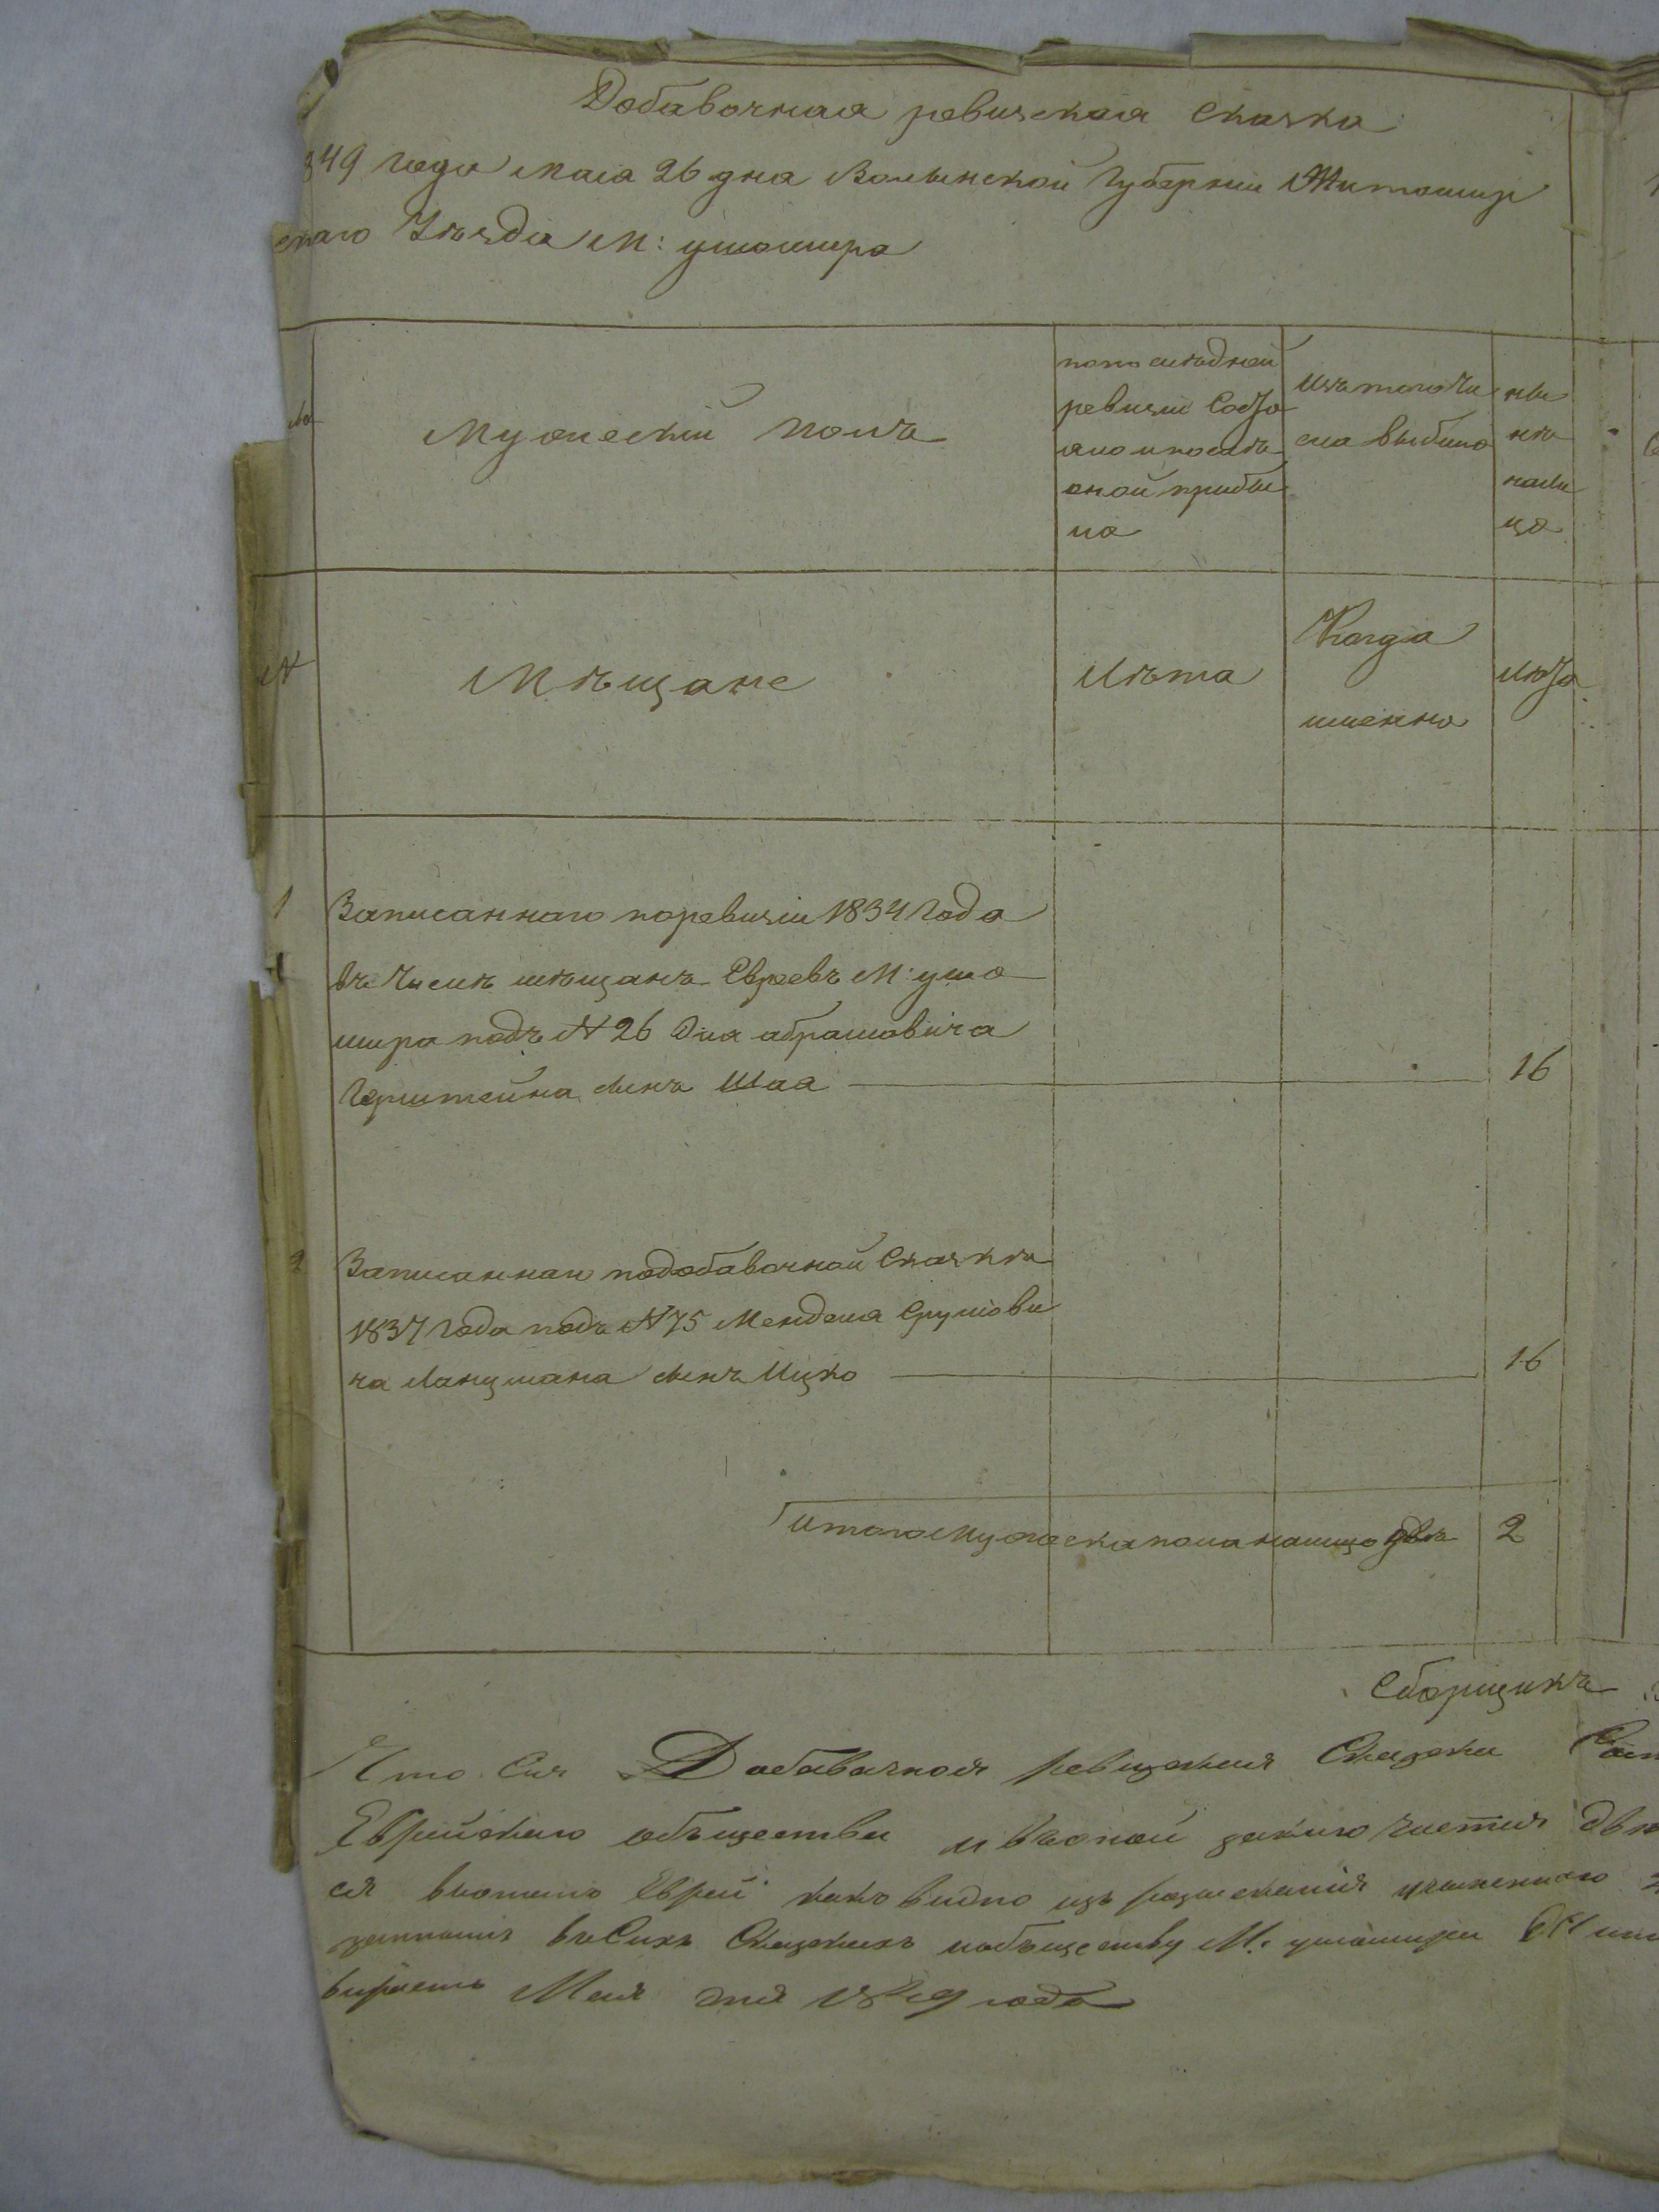 Добавочная ревизская сказка
849 года Маія 26 дня Волынской Губернии Житомир
скаго Уѣзда М: ушомира
Мужескій полъ
по послѣдней
ревизіи Состо
яло и послѣ
оной прибы
ло
Изъ того чи
сла выбыло
ны
нѣ
нали
цо
№
Мѣщане
Лѣта
Когда
именно
Лѣта
1
Записаннаго поревизіи 1834 года
въ числѣ мѣщанъ Евреевъ М: ушо
мира подъ № 26 абрамовича
сынъ Шая
16
2
Записанного подобавочной Сказки
1837 года подъ № 75 Менделя Срулови
ча Ланцмана сынъ Ицко
16
Итого Мужеска пола налицо двѣ
2
Сборщикъ
Что Сия Добавочная ревизская Сказка
Еврейскаго общества и въ оной
ся Еврей какъ видно изъ
въ Сихъ Сказкахъ кобществу М. ушомира
Мая дня 1849 года